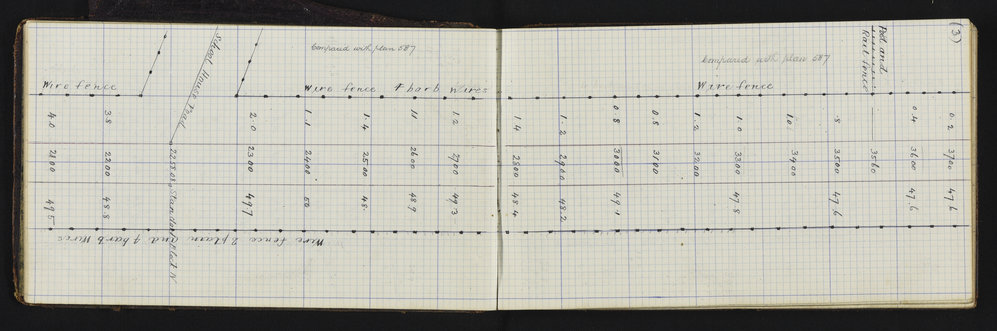 (3)
Compared with plan 587
Compared with plan 587
Post and
Rail fence
School House Road
Wire fence
Wire fence 4 barb Wires
Wire fence
4.0 3.8 2.0 1.1 1.4 11 1.2 1.4 1.2 0.8 0.8 1.2 1.0 10 .8 0.4 0.2
2200 2300 2400 2500 2600 2700 2800 2900 3000 3100 3200 3300 3400 3500 3560 3600 3700
2258.08 Standard
49.5 48.8 49.7 50 48 48.9 49.3 48.4 48.2 49.1 47.8 47.6 47.6 47.6
Wire fence 2 plain and 4 barb Wires